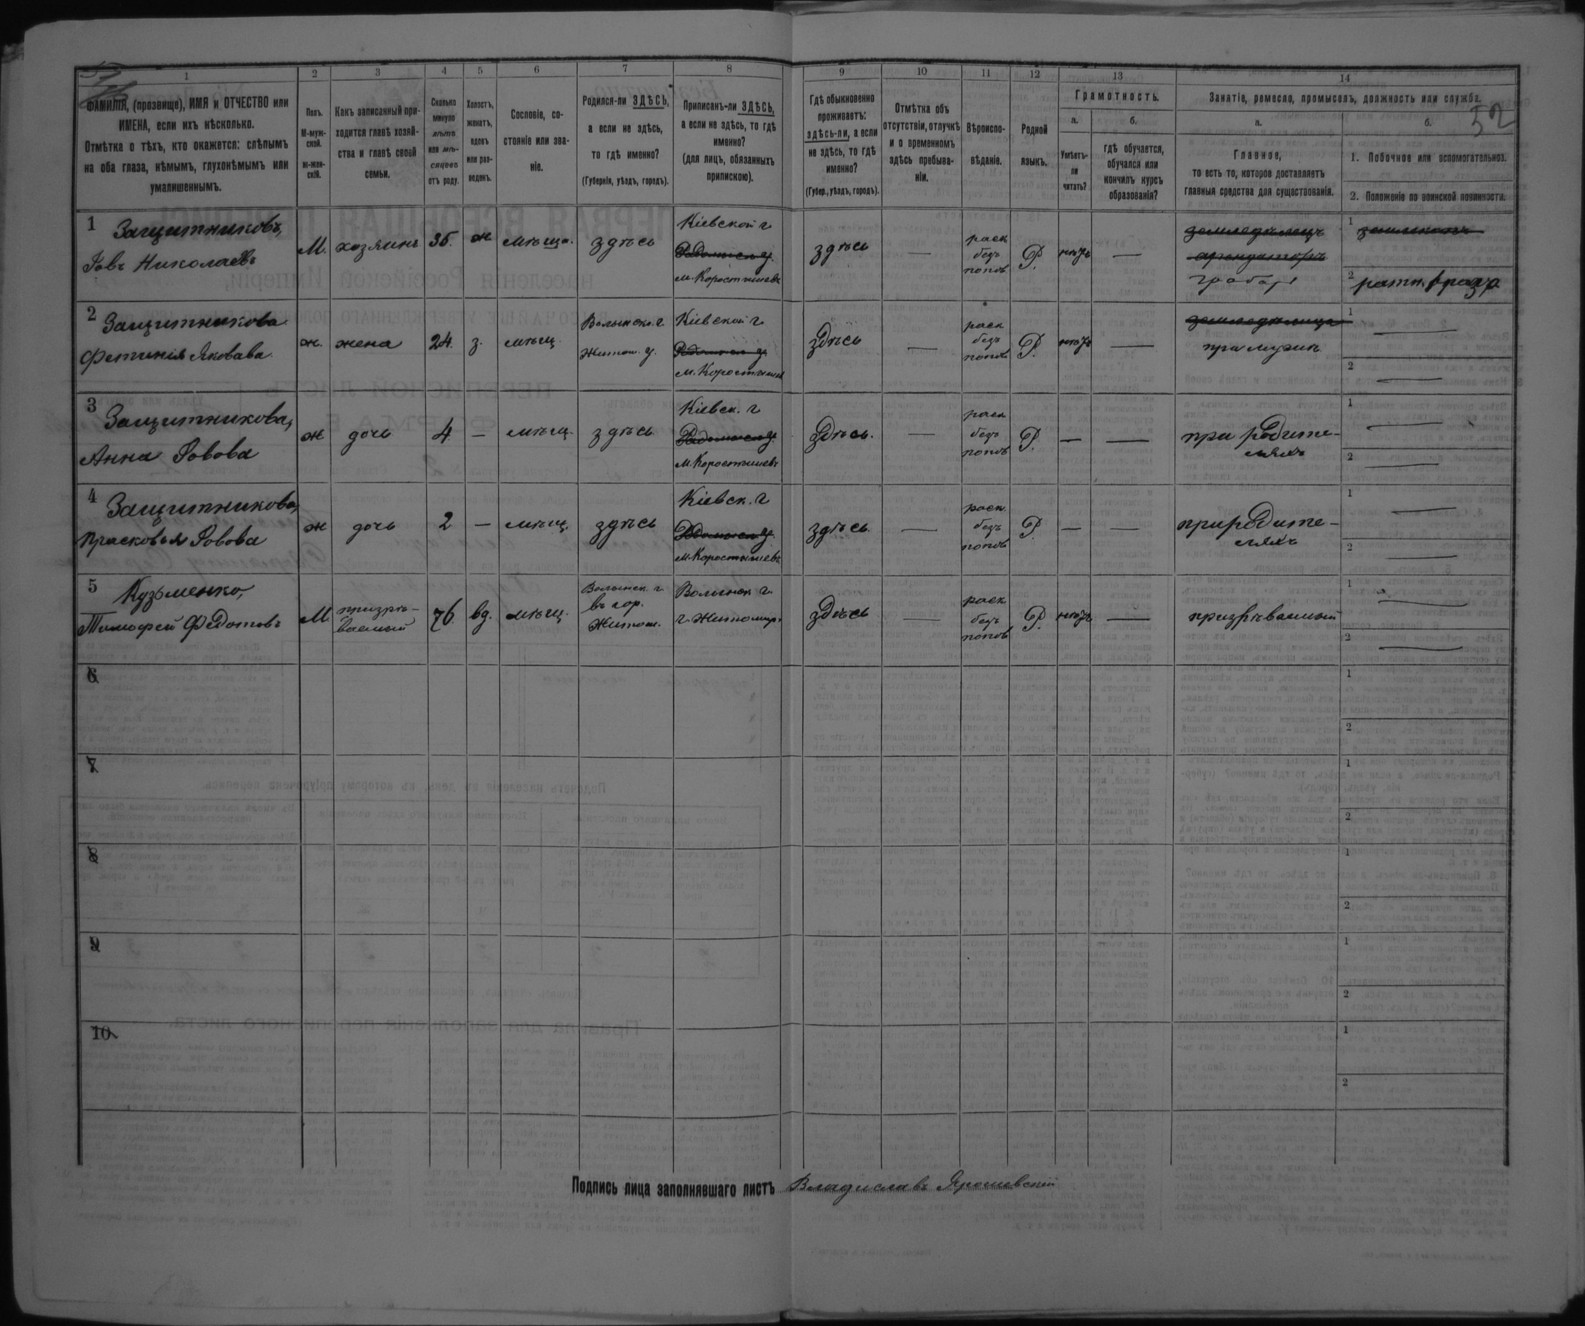 1 2 3 4 5 6 7 8 9 10 11 12 13 14
52
ФАМИЛІЯ, (прозвище), ИМЯ и ОТЧЕСТВО или
ИМЕНА, если ихъ нѣсколько.
Отмѣтка о тѣхъ, кто окажется: слѣпымъ
на оба глаза, нѣмымъ, глухонѣмымъ или
умалишеннымъ.
Полъ.
М-муж-
ской.
Ж-жен-
скій.
Какъ записанный при-
ходится главѣ хозяй-
ства и главѣ своей
семьи.
Сколько
минуло
лѣтъ
или мѣ-
сяцевъ
отъ роду.
Холостъ,
женатъ,
вдовъ
или раз-
веденъ.
Сословіе, со-
стояніе или зва-
ніе.
Родился-ли ЗДѢСЬ,
а если не здѣсь,
то гдѣ именно?
(Губернія, уѣздъ, городъ).
Приписанъ-ли ЗДѢСЬ,
а если не здѣсь, то гдѣ
именно?
(для лицъ, обязанныхъ
припискою).
Гдѣ обыкновенно
проживаетъ:
здѣсь-ли, а если
не здѣсь, то гдѣ
именно?
(Губер., уѣздъ, городъ).
Отмѣтка объ
отсутствіи, отлучкѣ
и о временномъ
здѣсь пребыва-
ніи.
Вѣроиспо-
вѣданіе.
Родной
языкъ.
Грамотность.
а.
Умѣетъ-
ли
читать?
б.
гдѣ обучается,
обучался или
кончилъ курсъ
образованія?
Занятіе, ремесло, промыселъ, должность или служба.
а.
Главное,
то есть то, которое доставляетъ
главныя средства для существованія.
б.
1. Побочное или вспомогательное.
2. Положеніе по воинской повинности.
1 Защитниковъ,
Іовъ Николаевъ
М. хозяинъ 35. ж мѣща. здѣсь
Кіевской г
м. Коростышевъ
здѣсь —
раск
безъ
попов
Р. —
земледѣлецъ
арендаторъ
1
2 ратн.
2 Защитникова
Фетинія Яковава
ж. жена 24. з. мѣщ
Волынск. г.
Житом. у.
Кіевской г
м. Коростышев
здѣсь —
раск
безъ
попов
Р. —
при мужѣ
1 —
2 —
3 Защитникова,
Анна Іовова
ж дочь 4 — мѣщ здѣсь
Кіевск. г
м. Коростышев
здѣсь. —
раск
безъ
попов
Р. — —
при родите-
ляхъ
1 —
2 —
4 Защитникова,
Прасковья Іовова
ж дочь 2 — мѣщ. здѣсь
Кіевск. г
м. Коростышев
здѣсь —
раск
безъ
попов
Р. — —
при родите-
ляхъ
1 —
2 —
5 Кузьменко,
Тимофей Федотовъ
М призрѣ-
ваемый
76 вд. мѣщ.
Волынск. г
въ гор.
Житом.
Волынск г
г. Житомир
здѣсь —
раск
безъ
попов
Р. —
призрѣваемый
1 —
2 —
6 1
2
7 1
2
8 1
2
9 1
2
10 1
2
Подпись лица заполнявшаго листъ Владиславъ Ярошевскій